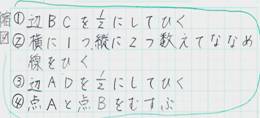 縮①辺BCを1/2にしてひく
図②横に1つ,縦に2つ数えてななめ
線をひく
③辺ADを1/2にしてひく
④点Aと点Bをむすぶ